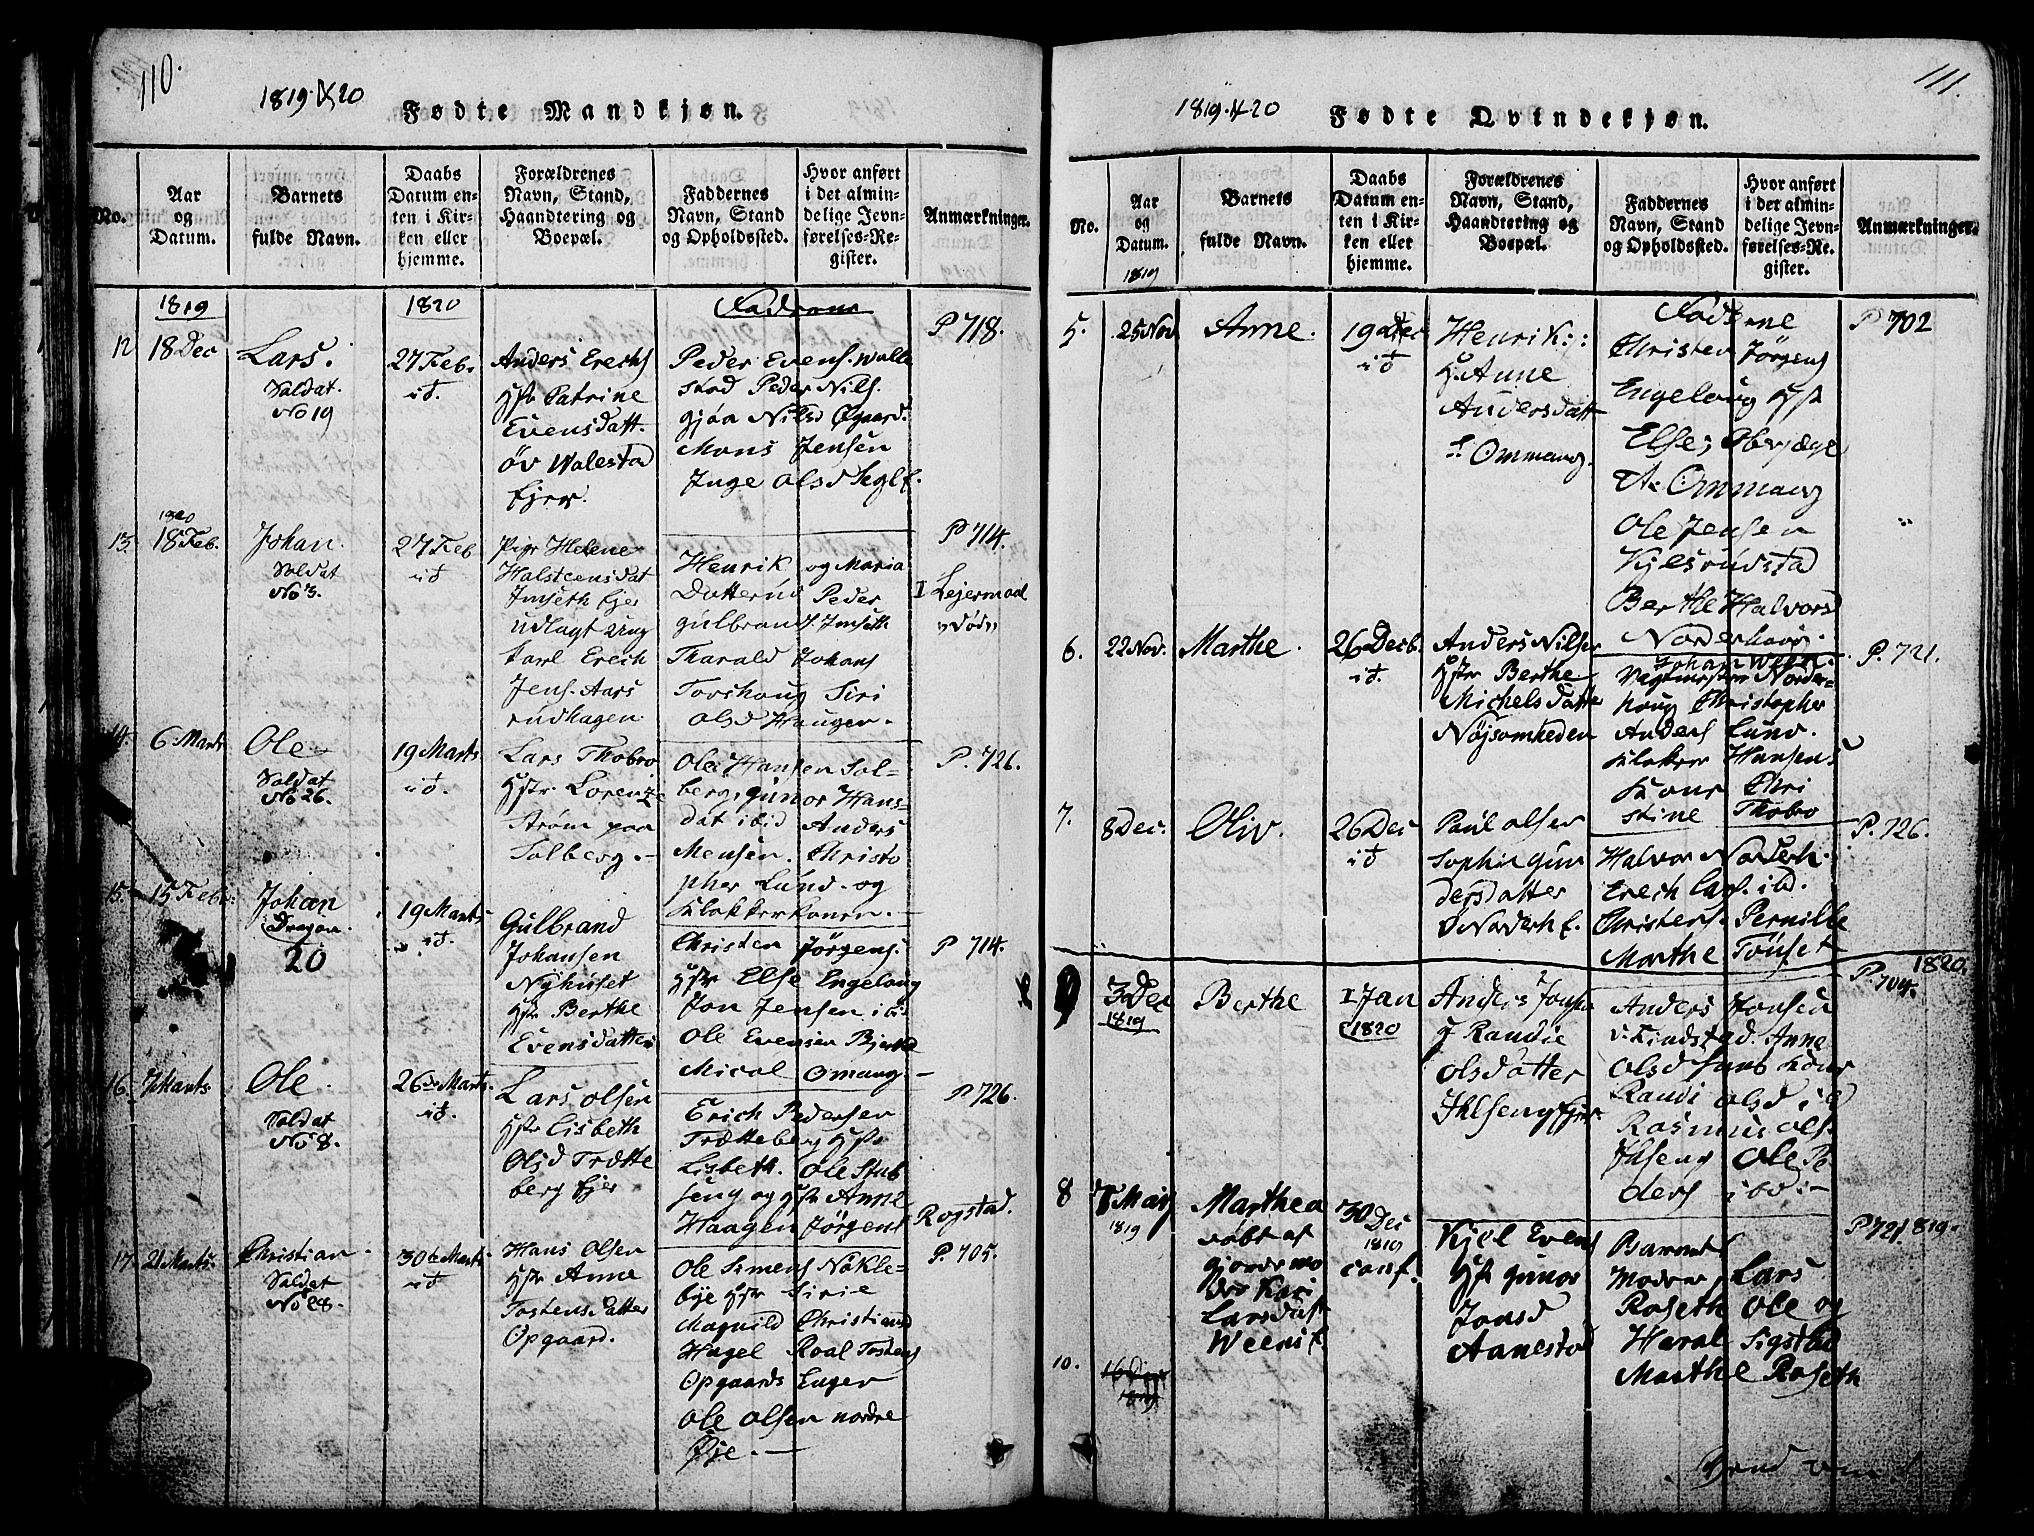 110.
1819 & 20
Fødte Mandkjøn.
No.
Aar
og
Datum.
Barnets
fulde Navn.
Daabs
Datum en-
ten i Kir-
ken eller
hjemme.
Forældrenes
Navn, Stand,
Haandtering og
Boepæl.
Faddernes
Navn, Stand
og Opholdsted.
Hvor anført
i det almin-
delige Jevn-
førelses-Re-
gister.
Anmærkninger.
1819
1820
Fadrene
12
18 Dec
Lars.
Soldat.
No 19
27 Feb.
Anders Erichs
Hstr Patrine
Evensdatt.
Walestad
Ejer.
Peder Evens. Walle
stad Peder Nils.
Nils Øgaard.
Mons Jensen
Inge Olsd
P 718.
1820
13.
18 Feb.
Johan.
Soldat
No 3.
27 Feb
Pige Helene
Halsteensdat
Imseth Ejer
udlagt ung
karl Erech
Jens. Aars
rudhagen
Henrik og Maria
Dotterud Peder
Gulbrands. Imseth
Tharald Johans
Torshoug Siri
Olsd Hauger.
P 714.
1 Lejermaal
Død
14.
6 Marts
Ole
Soldat
No 26.
19 Marts
Lars Thobro
Hstr Lorenze
Strøm paa
Solberg.
Ole Hansen Sol-
berg, Gunor Hans-
dat ibid Anders
Mensen. Christo
pher Lund. og
Klokkerkonen.
P. 726.
15.
15 Feb.
Johan
Dragon.
20
19 Marts
Gulbrand
Johansen
Nyhuset
Hstr Berthe
Evensdatter
Christen Jørgens.
Hstr Else Engeloug
Jon Jensen ibi.
Ole Evensen
Micol Omang.
P 714.
16.
7 Marts
Ole.
Soldat
No 8.
26 Marts.
Lars Olsen
Hstr Lisbeth
Olsd Trætte
berg Ejer
Erich Pedersen
Trætteberg Hstr
Lisbeth. Ole Stub
seng og Hstr Anne
Haagen Jørgens
P 726.
Rogstad.
17.
21 Marts.
Christian
Soldat
No 28.
30 Marts
Hans Olsen
Hstr Anne
Tostensdatter
Opgaard.
Ole Simens Nökle-
bye Hstr Sirie
Magnild Christians
Hagel Roal Tostens
Opgaards Enger
Ole Olsen nordre
Øje.
P. 705.
111.
1819 & 20
Fødte Qvindekjøn.
No.
Aar
og
Datum.
1819
Barnets
fulde Navn.
Daabs
Datum en-
ten i Kir-
ken eller
hjemme.
Forældrenes
Navn, Stand,
Haandtering og
Boepæl.
Faddernes
Navn, Stand
og Opholdssted.
Hvor anført
i det almin-
delige Jevn-
førelses-Re-
gister.
Anmærkninger.
5.
25 Nov
Anne.
19 Dec
Henrik:
H. Anne
Andersdatt
Ommang.
Christen Jörgens
Engeloug Hstr
Else,
A. Ommang
Ole Jensen
Kjelsrudstad
Berthe Halvors
Norderhoug.
P 702
6.
22 Nov.
Marthe.
26 Decb.
Anders Nilsen
Hstr Berthe
Michelsdatte
Nøjsomheden
Vagtmester Norder-
houg Christopher
Anders Lund.
Klokker Hansens
Kone Chri
stine Thobro
P. 721.
7.
8 Dec.
Oliv.
26 Dec
Paul Olsen
Sophie Gun
dersdatter
Halvor Norderh.
Erech Lars. ibd.
Christens. Pernille
Marthe Tønset
P. 726.
1820.
9
3 Dec
1819
Berthe
1 Jan
1820
Anders
H Randie
Olsdatter
Ihlseng Ejer
Anders Hansen
Findstad. Anne
Olsd
Randi Olsd ibd
Rasmus Ols.
Ihlseng Ole Pe
ders ibd.
P. 704.
8
1819
Marthea
døbt af
gjordemo
der Kari
Larsdatt
30 Dec
1819
conf.
Kjel Evens
Hstr Gunor
Jonsd
Aanestad
Barnets
Moder, Lars
Roseth Ole og
Haral Sigstad
Marthe Roseth
P. 721. 819.
10.
16 Dec
1819
Vend om!